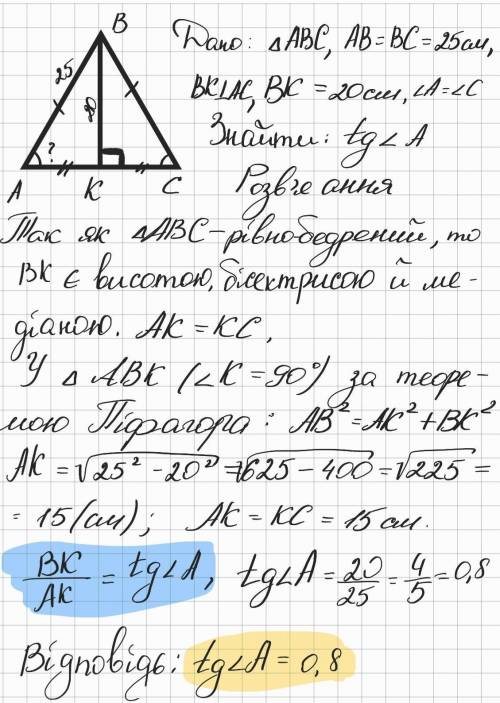 B
25
20
?
A
K
C
Дано: △ABC, AB = BC = 25см,
BK⊥AC, BK = 20см, ∠A = ∠C
Знайти: tg∠A
Розвʼязання
Так як △ABC - рівнобедрений, то
BK є висотою, бісектрисою й ме-
діаною. AK = KC,
У △ ABK (∠K = 90°) за теоре-
мою Піфагора: AB² = AK² + BK²
AK = √25² - 20² = √625 - 400 = √225 =
= 15 (см); AK = KC = 15 см.
BK/AK = tg∠A, tg∠A = 20/25 = 4/5 = 0,8
Відповідь: tg∠A = 0,8